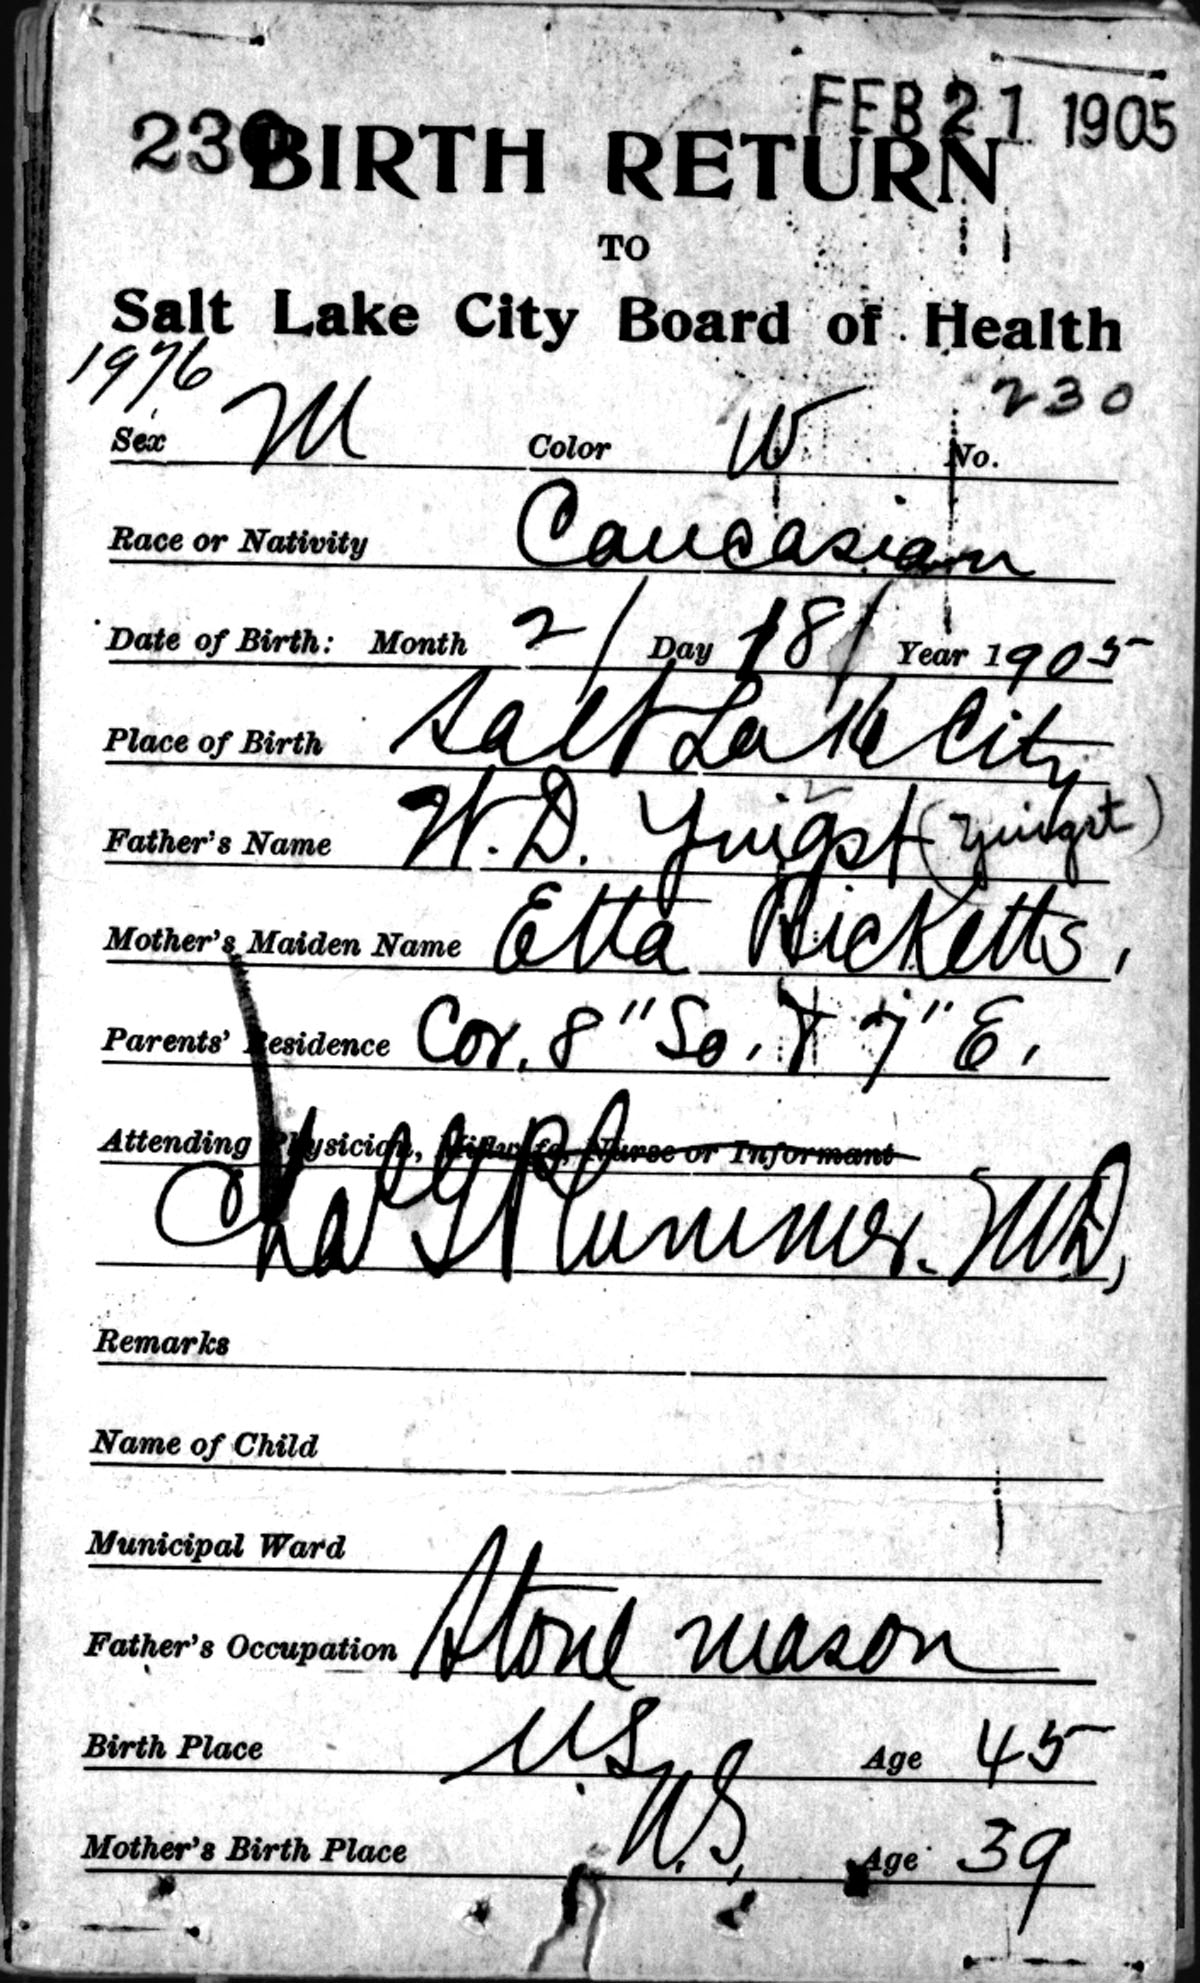 FEB 21 1905
230 BIRTH RETURN
TO
Salt Lake City Board of Health
1976
230
Sex M Color W No.
Race or Nativity Caucasian
Date of Birth: Month 2/ Day 18/ Year 1905
Place of Birth Salt Lake City
Father's Name W. D. Yuigst (Yuigst)
Mother's Maiden Name Etta Ricketts,
Parents' Residence Cor. 8" So. & 7" E.
Attending Physician, Midwife, Nurse or Informant
Chas G Plummer. M.D,
Remarks
Name of Child
Municipal Ward
Father's Occupation Stone mason
Birth Place U.S. Age 45
Mother's Birth Place U.S. Age 39